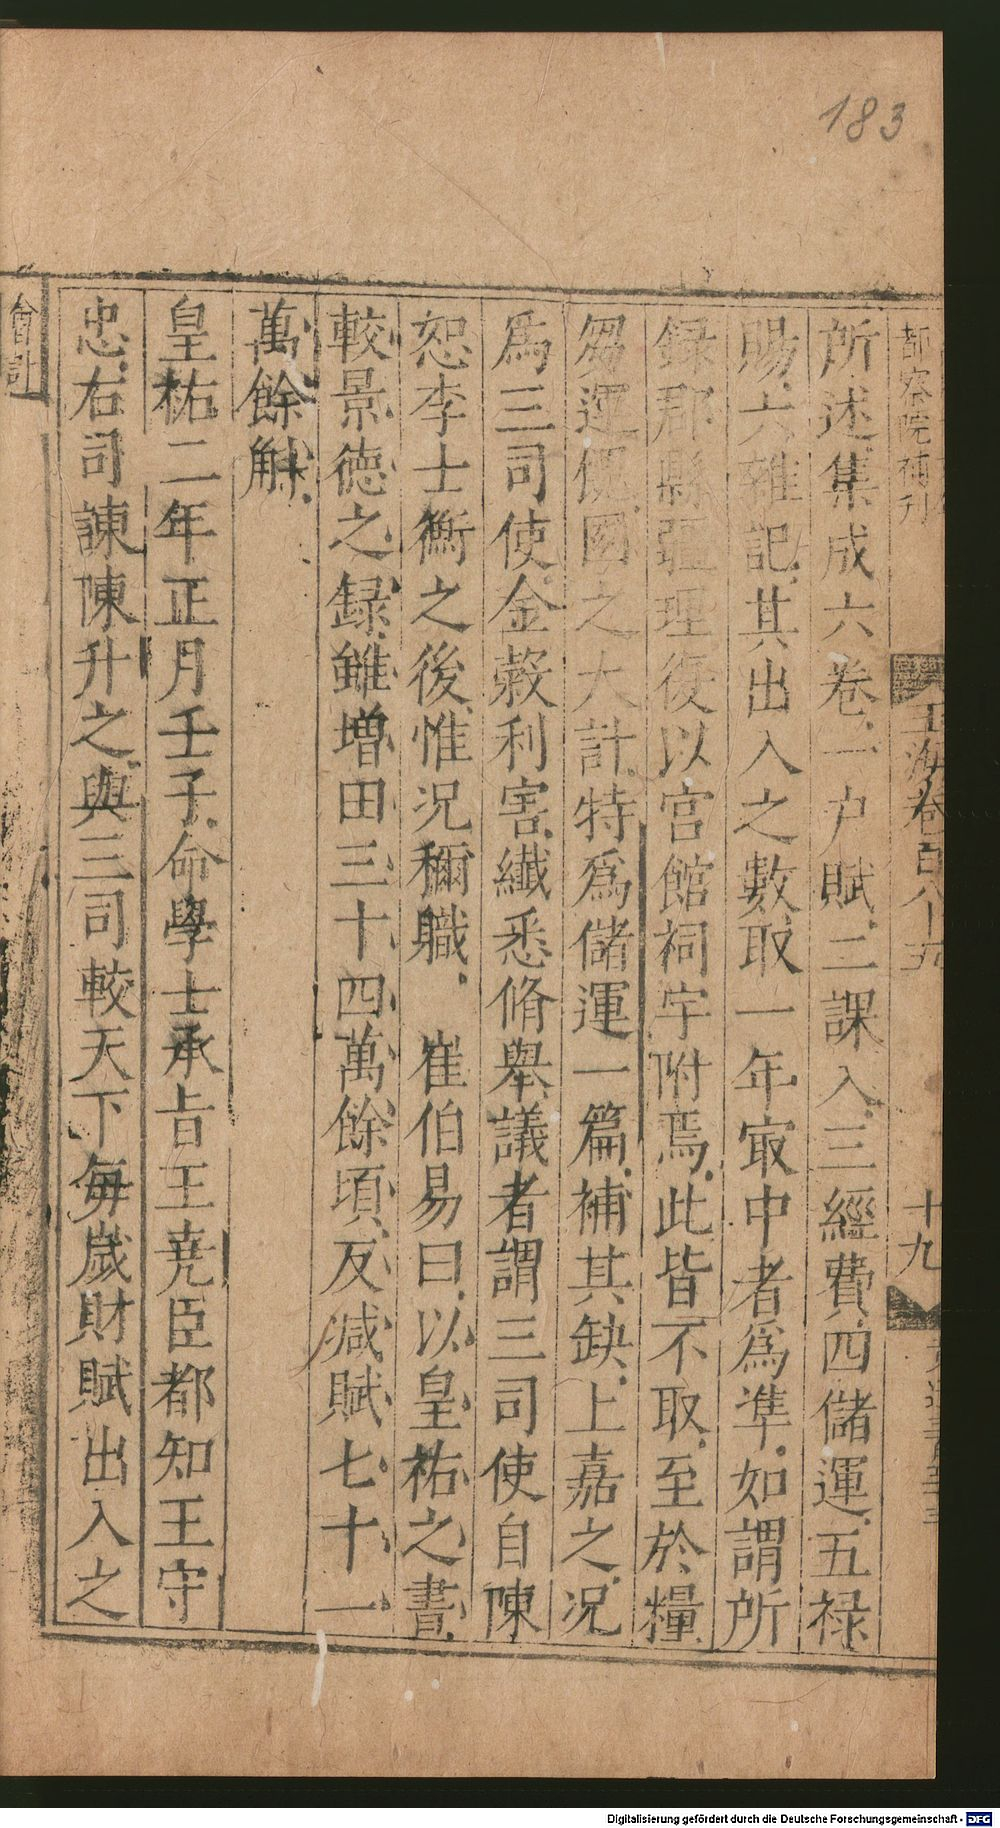 183
都察院補刊
玉海卷百八十五
十九
所述集成六卷一户賦二課入三經費四儲運五禄
賜六雜記其出入之數取一年㝡中者爲準如謂所
録郡縣疆理復以宫館祠宇附焉此皆不取至於糧
芻運㑮國之大計特爲儲運一篇補其缺上嘉之况
爲三司使金榖利害纎悉脩舉議者謂三司使自陳
恕李士衡之後惟况稱職 崔伯易曰以皇祐之書
較景德之録雖增田三十四萬餘頃反减賦七十一
萬餘斛
皇祐二年正月壬子命學士承㫖王堯臣都知王守
忠右司諫陳升之與三司較天下每歲財賦出入之
會計
Digitalisierung gefördert durch die Deutsche Forschungsgemeinschaft - DFG